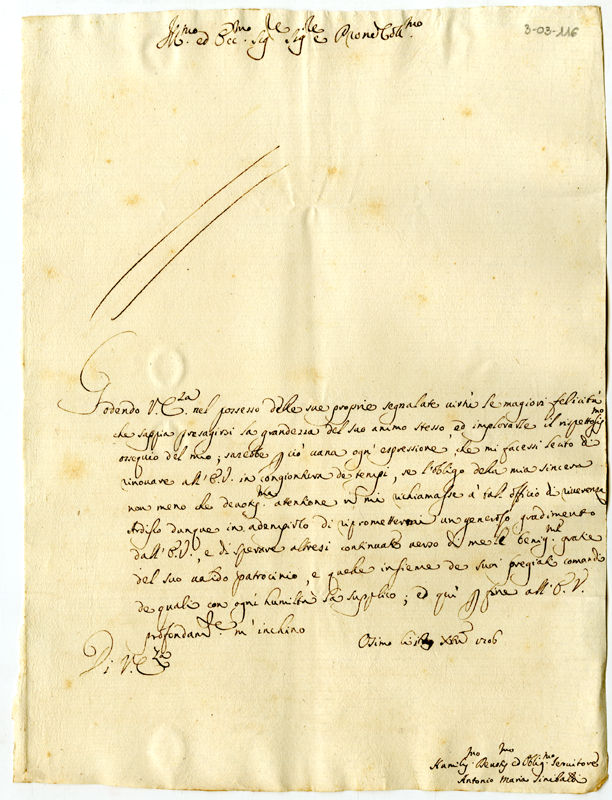 3-03-116
Ill.mo ed Ecc.mo Sig.re Sig.re e Pron Coll.mo
Godendo V. E.za nel possesso delle sue proprie segnalate virtù le magiori felicità
che sappia presagirsi la grandezza del suo animo stesso ed implorarle il rispettosis.mo
ossequio del mio; sarebbe p ciò vana ogn' espressione, che mi facessi lecito di
rinovare all' E.V. in congiontura de tempi, se l'obligo della mia sincera
non meno che devotis.ma atentione non mi richiamasse à tal officio di riverenza
Ardisco dunque in adempirlo di ripromettermi un generoso gradimento
dall' E.V., e di sperare altresì continuate verso di me le benig.me gratie
del suo valido patrocinio, e quelle insieme de suoi pregiati comandi
de quali con ogni humiltà la supplico; ed qui p fine all' E.V.
profondam.te m' inchino
Di V. E.za
Osimo 1706
Humilis.mo Devotis.mo ed Oblig.mo Servitore
Antonio Maria Sinibaldi